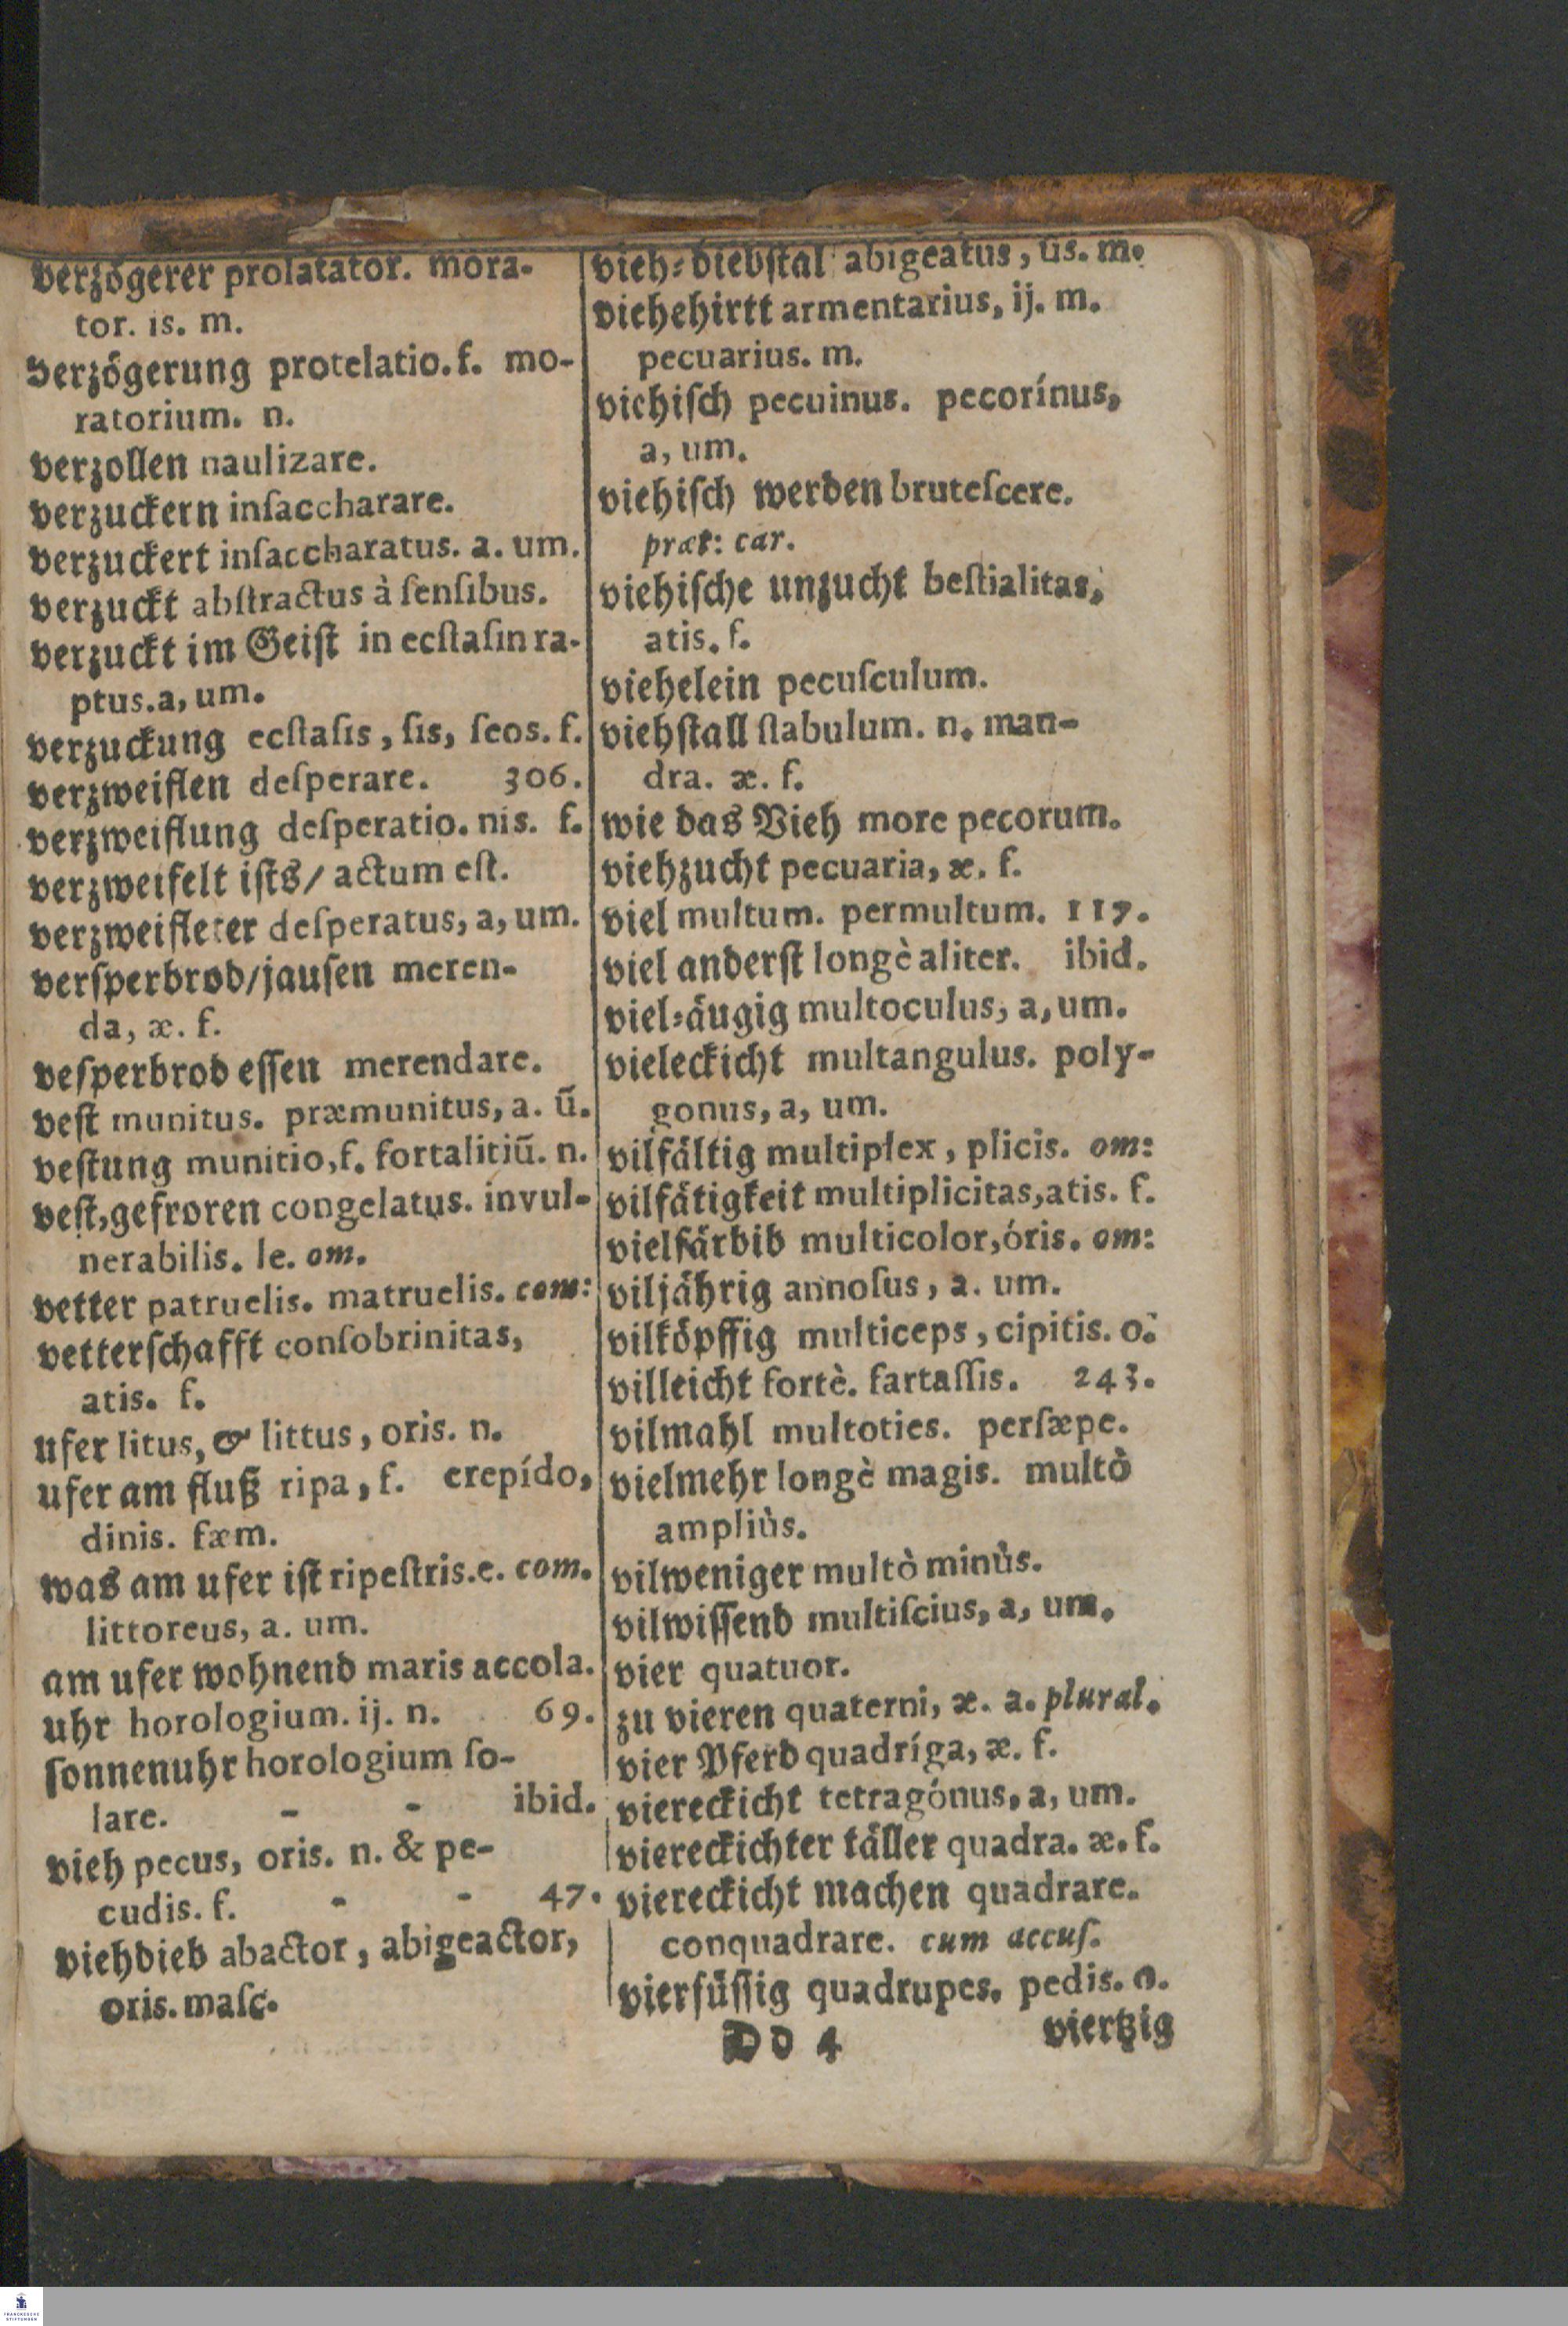 verzögerer prolatator. mora-
tor. is. m.
Verzögerung protelatio. f. mo-
ratorium. n.
verzollen naulizare.
verzuckern inſaccharare.
verzuckert inſaccharatus. a. um.
verzuckt abſtractus à ſenſibus.
verzuckt im Geiſt in ecſtaſin ra-
ptus. a, um.
verzuckung ecſtaſis, ſis, ſeos. f.
verzweiflen deſperare. 306.
verzweiflung deſperatio. nis. f.
verzweifelt iſts/ actum eſt.
verzweifleter deſperatus, a, um.
verſperbrod/jauſen meren-
da, æ. f.
veſperbrod eſſen merendare.
veſt munitus. præmunitus, a. ū.
veſtung munitio, f. fortalitiū. n.
veſt,gefroren congelatus. invul-
nerabilis. le. om.
vetter patruelis. matruelis. com:
vetterſchafft conſobrinitas,
atis. f.
ufer litus, & littus, oris. n.
ufer am fluß ripa, f. crepído,
dinis. fæm.
was am ufer iſt ripeſtris. e. com.
littoreus, a. um.
am ufer wohnend maris accola.
uhr horologium. ij. n. 69.
ſonnenuhr horologium ſo-
lare. - - ibid.
vieh pecus, oris. n. & pe-
cudis. f. - - 47.
viehdieb abactor, abigeactor,
oris. maſc.
vieh⸗diebſtal abigeatus, ûs. m.
viehehirtt armentarius, ij. m.
pecuarius. m.
viehiſch pecuinus. pecorínus,
a, um.
viehiſch werden bruteſcere.
præt: car.
viehiſche unzucht beſtialitas,
atis. f.
viehelein pecuſculum.
viehſtall ſtabulum. n. man-
dra. æ. f.
wie das Vieh more pecorum.
viehzucht pecuaria, æ. f.
viel multum. permultum. 117.
viel anderſt longè aliter. ibid.
viel⸗äugig multoculus, a, um.
vieleckicht multangulus. poly-
gonus, a, um.
vilfältig multiplex, plicis. om:
vilfätigkeit multiplicitas, atis. f.
vielfärbib multicolor, óris. om:
viljährig annoſus, a. um.
vilköpffig multiceps, cipitis. o:
villeicht fortè. fartaſſis. 243.
vilmahl multoties. perſæpe.
vielmehr longè magis. multò
ampliùs.
vilweniger multò minùs.
vilwiſſend multiſcius, a, um.
vier quatuor.
zu vieren quaterni, æ. a. plural.
vier Pferd quadríga, æ. f.
viereckicht tetragónus, a, um.
viereckichter täller quadra. æ. f.
viereckicht machen quadrare.
conquadrare. cum accuſ.
vierfüſſig quadrupes. pedis. o.
Dd 4 viertzig
FRANCKESCHE
STIFTUNGEN